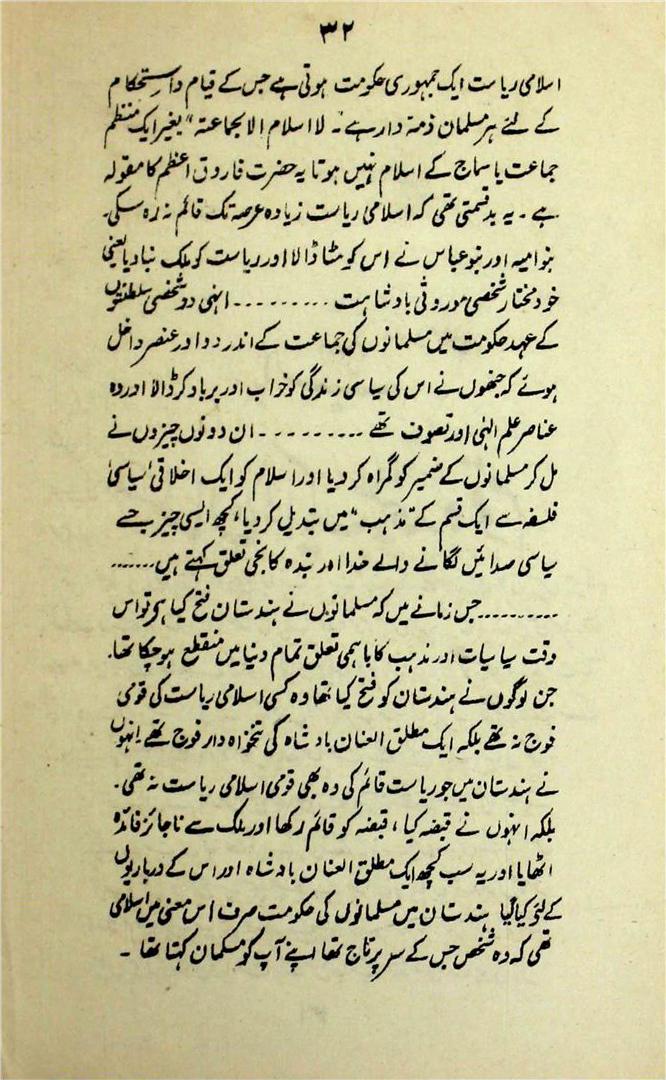 ۳۲
اسلامی ریاست ایک جمہوری حکومت ہوتی ہے جس کے قیام و استحکام
کے لئے ہر مسلمان ذمہ دار ہے۔ لا اسلام الا بجماعتہ "بغیر ایک منظم
جماعت یا سماج کے اسلام نہیں ہوتا یہ حضرت فاروق اعظم کا مقولہ
ہے۔ یہ بدقسمتی تھی کہ اسلامی ریاست زیادہ عرصہ تک قائم نہ رہ سکی۔
بنو امیہ اور بنو عباس نے اس کو مٹا ڈالا اور ریاست کو ملک بنا دیا یعنی
خود مختار شخصی موروثی بادشاہت ......... انہی دو شخصی سلطنتوں
کے عہد حکومت میں مسلمانوں کی جماعت کے اندر دو اور عنصر داخل
ہوئے کہ جنھوں نے اس کی سیاسی زندگی کو خراب اور برباد کر ڈالا اور وہ
عناصر علم الہٰی اور تصوف تھے ......... ان دونوں چیزوں نے
مل کر مسلمانوں کے ضمیر کو گمراہ کر دیا اور اسلام کو ایک اخلاقی، سیاسی
فلسفہ سے ایک قسم کے "مذہب" میں تبدیل کر دیا، کچھ ایسی چیز جسے
سیاسی صدائیں لگانے والے خدا اور بندہ کا نجی تعلق کہتے ہیں .......
......... جس زمانے میں کہ مسلمانوں نے ہندستان فتح کیا ہے تو اس
وقت سیاسیات اور مذہب کا باہمی تعلق تمام دنیا میں منقطع ہو چکا تھا۔
جن لوگوں نے ہندستان کو فتح کیا تھا وہ کسی اسلامی ریاست کی قومی
فوج نہ تھے بلکہ ایک مطلق العنان بادشاہ کی تنخواہ دار فوج تھے انہوں
نے ہندستان میں جو ریاست قائم کی وہ بھی قومی اسلامی ریاست نہ تھی۔
بلکہ انہوں نے قبضہ کیا، قبضہ کو قائم رکھا اور ملک سے ناجائز فائدہ
اٹھایا اور یہ سب کچھ ایک مطلق العنان بادشاہ اور اس کے درباریوں
کے لئے کیا گیا ہندستان میں مسلمانوں کی حکومت صرف اس معنی میں اسلامی
تھی کہ وہ شخص جس کے سر پر تاج تھا اپنے آپ کو مسلمان کہتا تھا۔